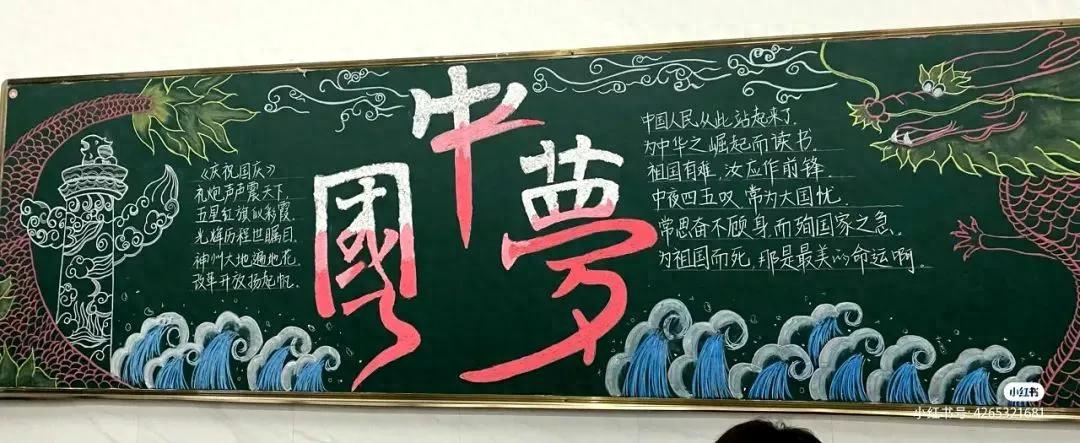 《庆祝国庆》
礼炮声声震天下.
五星红旗似彩霞.
光辉历程世瞩目.
神州大地遍地花.
改革开放扬起帆.
中國夢
中国人民从此站起来了.
为中华之崛起而读书.
祖国有难,汝应作前锋.
中夜四五叹,常为大国忧.
常思奋不顾身,而殉国家之急。
为祖国而死,那是最美的命运啊。
小红书
小红书号:4265321681